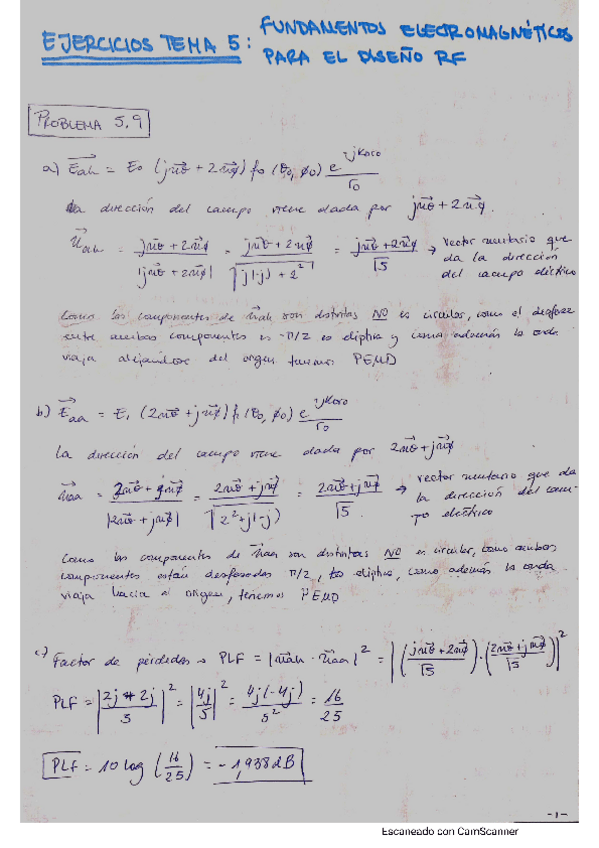 EJERCICIOS TEMA 5: FUNDAMENTOS ELECTROMAGNÉTICOS
PARA EL DISEÑO RF
PROBLEMA 5.9
a) E⃗ah = E0 (ju⃗θ + 2u⃗φ) f0 (θ0, φ0) e^-jK0r0 / r0
La dirección del campo viene dada por ju⃗θ + 2u⃗φ.
u⃗ah = ju⃗θ + 2u⃗φ / |ju⃗θ + 2u⃗φ| = ju⃗θ + 2u⃗φ / √(j(-j) + 2²) = ju⃗θ + 2u⃗φ / √5 → vector unitario que
da la dirección
del campo eléctrico
Como las componentes de u⃗ah son distintas NO es circular, como el desfase
entre ambas componentes es -π/2 es elíptica y como además la onda
viaja alejándose del origen tenemos PEMD
b) E⃗aa = E1 (2u⃗θ + ju⃗φ) f1 (θ0, φ0) e^-jK0r0 / r0
La dirección del campo viene dada por 2u⃗θ + ju⃗φ
u⃗aa = 2u⃗θ + ju⃗φ / |2u⃗θ + ju⃗φ| = 2u⃗θ + ju⃗φ / √(2² + j(-j)) = 2u⃗θ + ju⃗φ / √5 → vector unitario que da
la dirección del cam-
po eléctrico
Como las componentes de u⃗aa son distintas NO es circular, como ambas
componentes están desfasadas π/2, es elíptica, como además la onda
viaja hacia el origen, tenemos PEMD
c) Factor de pérdidas → PLF = |u⃗ah · u⃗aa|² = |(ju⃗θ + 2u⃗φ / √5) · (2u⃗θ + ju⃗φ / √5)|²
PLF = |2j + 2j / 5|² = |4j / 5|² = 4j(-4j) / 5² = 16 / 25
PLF = 10 log (16 / 25) = -1,938 dB
-1-
Escaneado con CamScanner